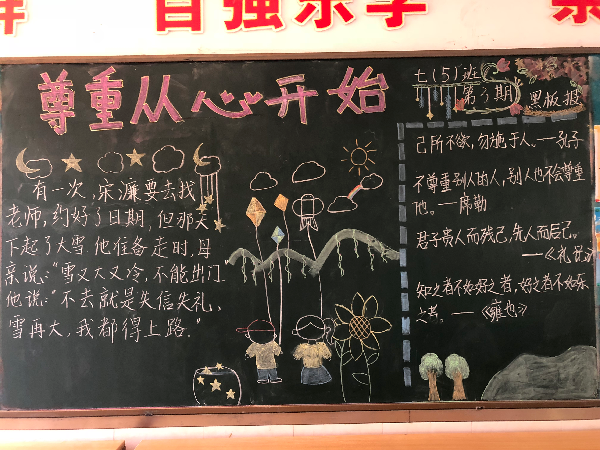 自强乐学
尊重从心开始
七(5)班
第3期
黑板报
有一次，宋濂要去找
老师，约好了日期，但那天
下起了大雪。他准备走时，母
亲说：“雪又大又冷，不能出门。”
他说：“不去就是失信失礼，
雪再大，我都得上路。”
己所不欲，勿施于人。——孔子
不尊重别人的人，别人也不会尊重
他。——席勒
君子贵人而贱己，先人而后己。
——《礼记》
知之者不如好之者，好之者不如乐
之者。——《雍也》